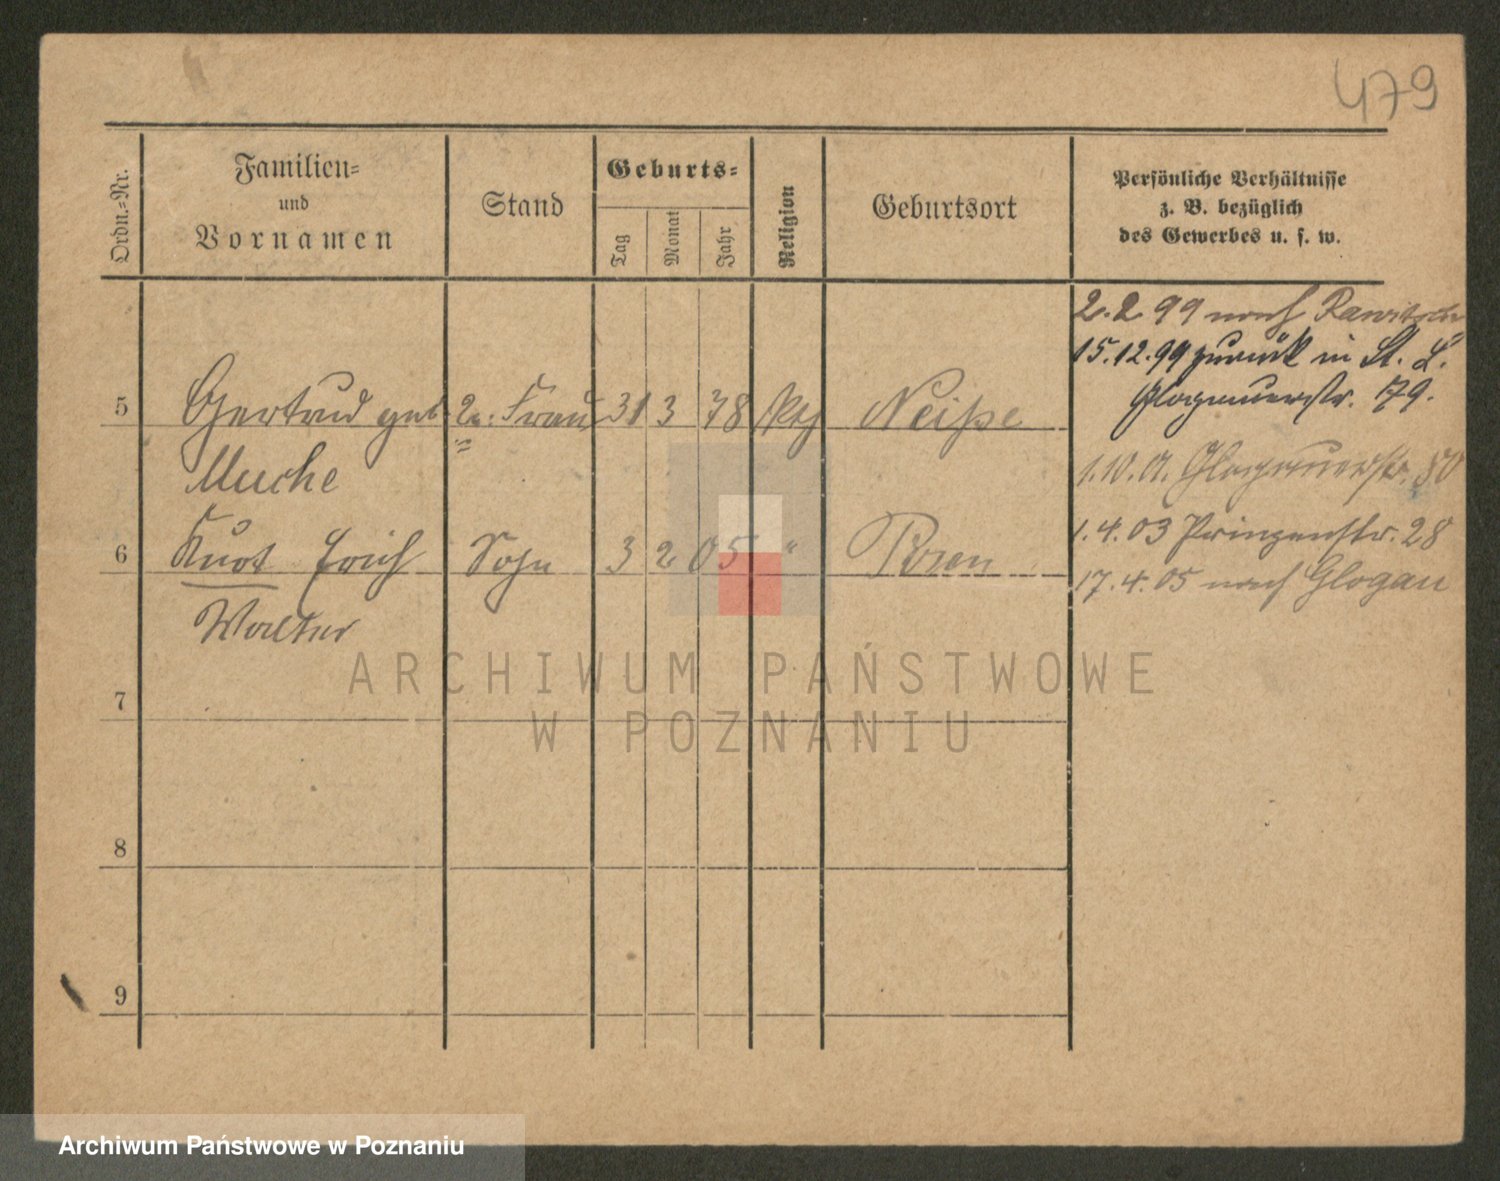 479
Ordn.-Nr.
Familien-
und
Vornamen
Stand
Geburts-
Tag
Monat
Jahr
Religion
Geburtsort
Persönliche Verhältnisse
z. B. bezüglich
des Gewerbes u. s. w.
2. 2 99 nach Rawitsch
15.12.99 zurück in St. L.
Glogauerstr. 79.
5 Gertrud geb 2te Frau 31 3 78 kth Neiße
Muche
1.10.01. Glogauerstr. 80
6 Kurt Erich Sohn 3 2 05 " Posen
Walter
1.4.03 Prinzenstr. 28
17.4.05 nach Glogau
7
8
9
ARCHIWUM PAŃSTWOWE
W POZNANIU
Archiwum Państwowe w Poznaniu